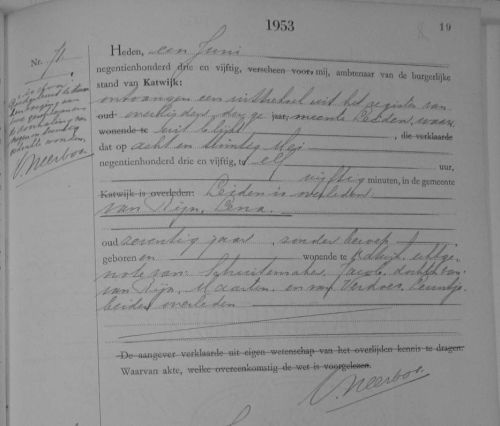 1953
19
Nr. 71
Heden, een Juni
negentienhonderd drie en vijftig, verscheen voor mij, ambtenaar van de burgerlijke
stand van Katwijk:
ontvangen een uittreksel uit het register van
oud overlijden, der ge jaar, meente Leiden, waar
wonende te uit blijkt , die verklaarde
dat op acht en twintig Mei
negentienhonderd drie en vijftig, te elf uur,
vijftig minuten, in de gemeente
Katwijk is overleden: Leiden is overleden
van Rijn, Lena.
oud zeventig jaar, zonder beroep
geboren en wonende te Katwijk, echtge-
note van: Schuitemaker, Jacob, dochter van
van Rijn, Maarten en van Verdoes, Leuntje
beiden overleden
De aangever verklaarde uit eigen wetenschap van het overlijden kennis te dragen.
Waarvan akte, welke overeenkomstig de wet is voorgelezen.